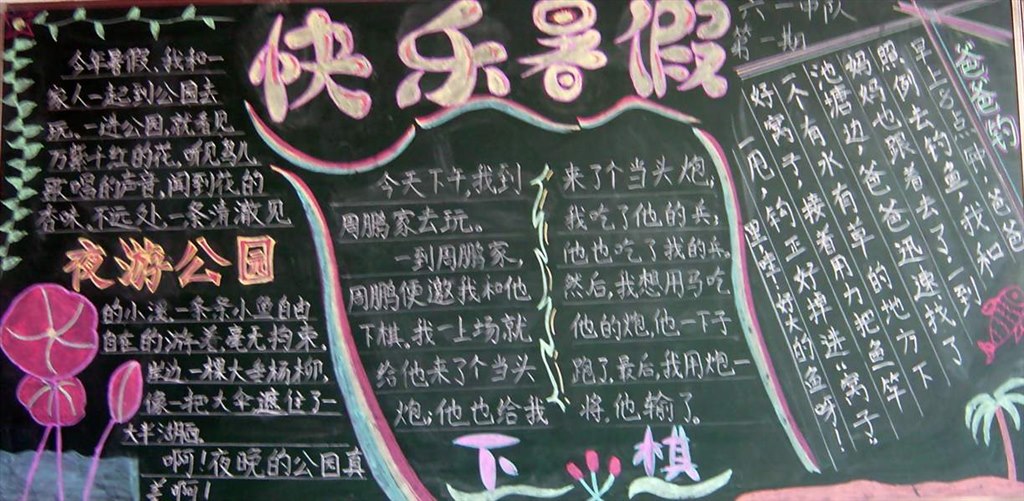 快乐暑假
六一中队
第一期
今年暑假,我和一
家人一起到公园去
玩。一进公园,就看见
万紫千红的花、听见鸟儿
歌唱的声音,闻到花的
香味、不远处、一条清澈见
夜游公园
的小溪,一条条小鱼自由
自在的游着毫无拘束,
岸边一棵大垂杨柳,
像一把大伞遮住了一
大半湖面。
啊!夜晚的公园真
美啊!
今天下午,我到
周鹏家去玩。
一到周鹏家,
周鹏便邀我和他
下棋,我一上场就
给他来了个当头
炮,他也给我
来了个当头炮,
我吃了他的兵,
他也吃了我的兵,
然后,我想用马吃
他的炮,他一下子
跑了,最后,我用炮一
将,他输了。
下棋
爸爸钓
早上,爸爸
照例去钓鱼,我和
妈妈也跟着去了。一到
池塘边,爸爸迅速找了
一个有水有草的地方下
好窝子,接着用力把鱼竿
一甩,钩正好掉进窝子。
哇!好大的鱼呀!